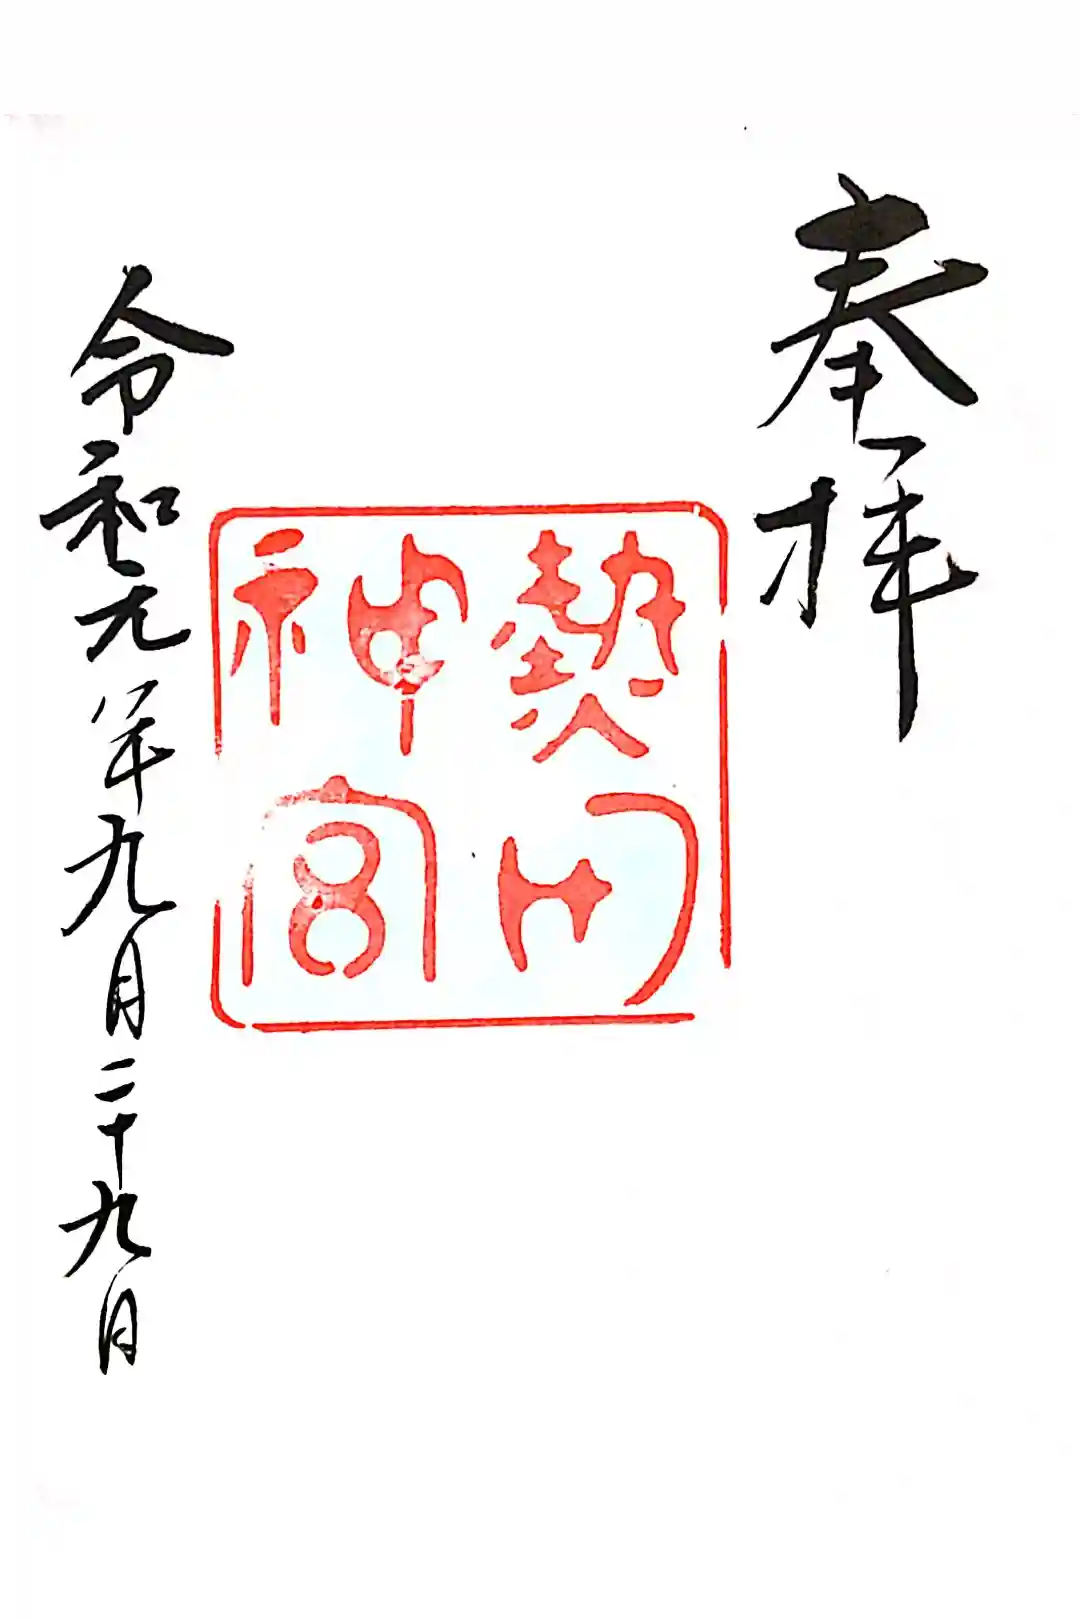 奉拝
熱田
神宮
令和元年九月二十九日